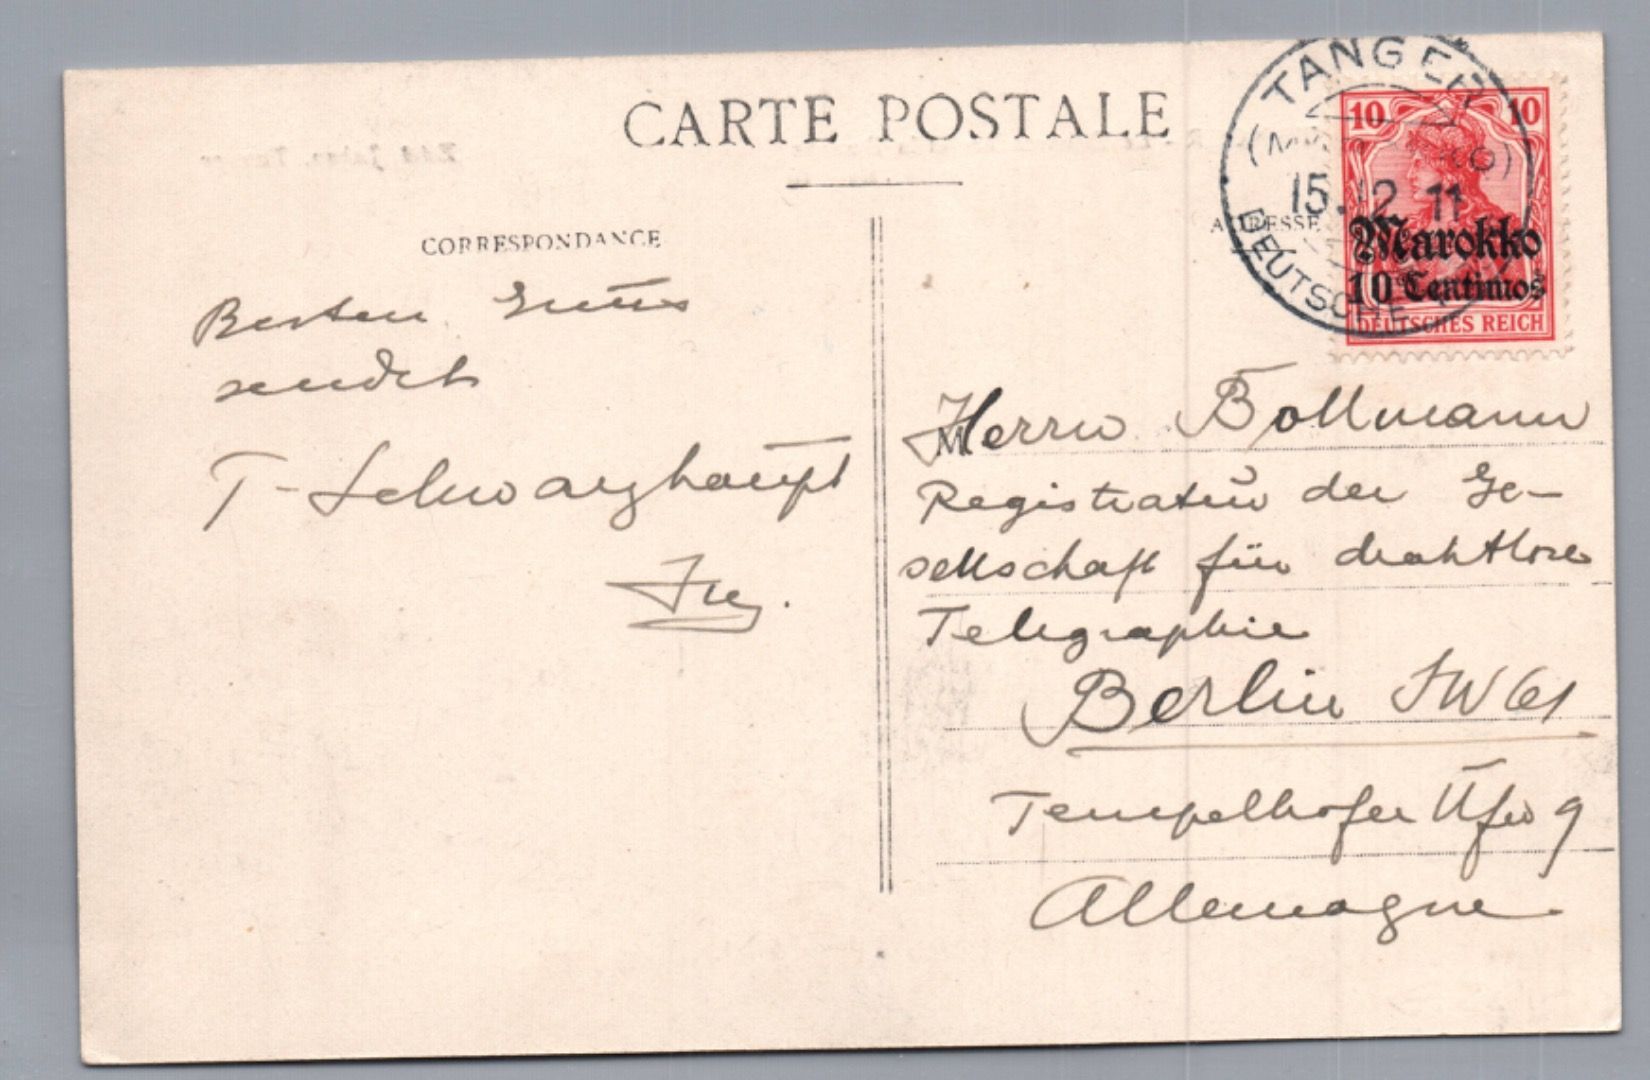 CARTE POSTALE
CORRESPONDANCE
ADRESSE
TANGER
(MAROCCO)
15.12 11
DEUTSCHE
10 10
Marokko
10 Centimos
DEUTSCHES REICH
Besten Gruss
sendet
T. Schwarzhaupt
Ing.
M
Herrn Bollmann
Registratur der Ge-
sellschaft für drahtlose
Telegraphie
Berlin SW 61
Tempelhofer Ufer 9
Allemagne